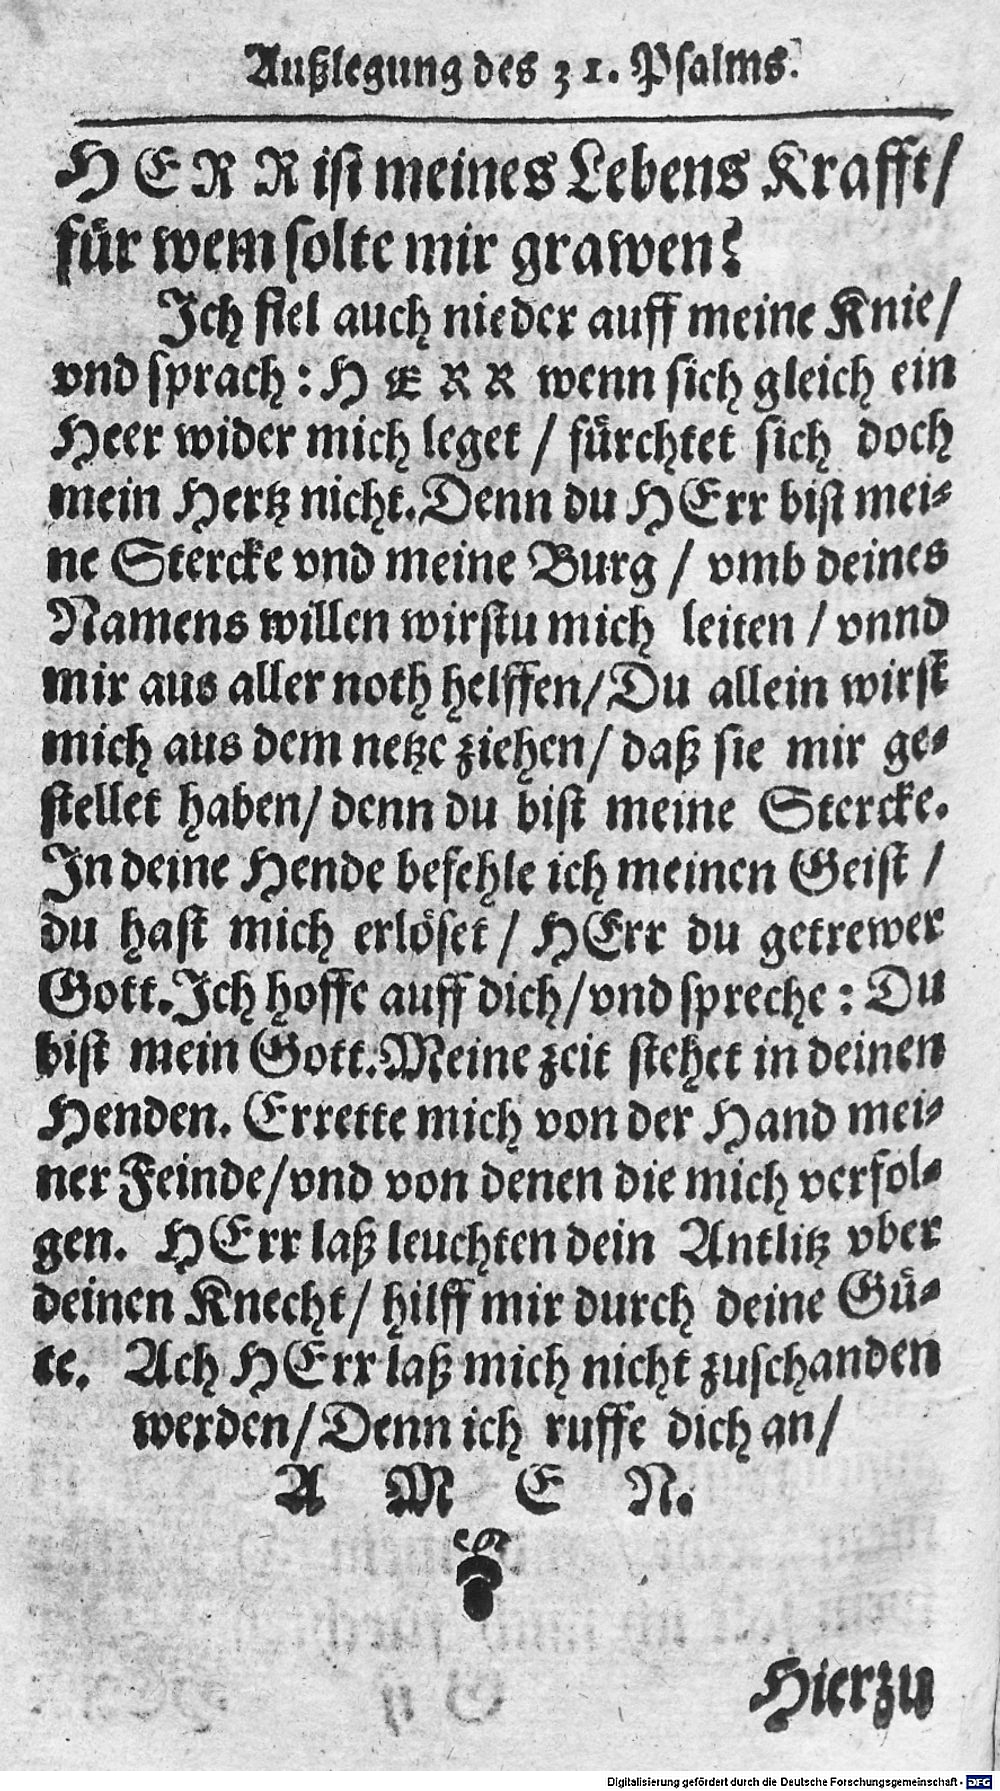 Außlegung des 31. Psalms.
HERR ist meines Lebens Krafft/
für wem solte mir grawen?
Ich fiel auch nieder auff meine Knie/
vnd sprach: HERR wenn sich gleich ein
Heer wider mich leget / fürchtet sich doch
mein Hertz nicht. Denn du HErr bist mei-
ne Stercke vnd meine Burg / vmb deines
Namens willen wirstu mich leiten / vnnd
mir aus aller noth helffen/ Du allein wirst
mich aus dem netze ziehen/ daß sie mir ge-
stellet haben/ denn du bist meine Stercke.
In deine Hende befehle ich meinen Geist /
du hast mich erlöset / HErr du getrewer
Gott. Ich hoffe auff dich/ vnd spreche: Du
bist mein Gott. Meine zeit stehet in deinen
Henden. Errette mich von der Hand mei-
ner Feinde/ vnd von denen die mich verfol-
gen. HErr laß leuchten dein Antlitz vber
deinen Knecht/ hilff mir durch deine Gü-
te. Ach HErr laß mich nicht zuschanden
werden/ Denn ich ruffe dich an/
A M E N.
Hierzu
Digitalisierung gefördert durch die Deutsche Forschungsgemeinschaft - DFG